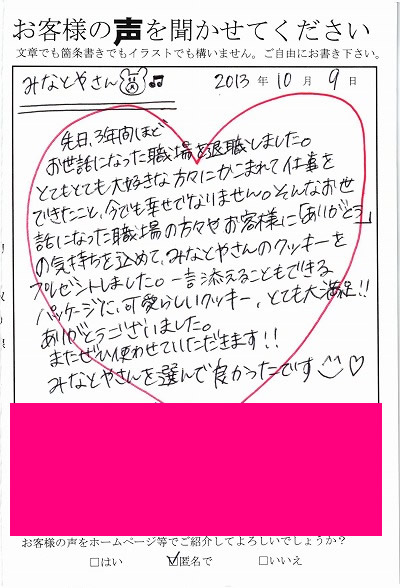 お客様の声を聞かせてください
文章でも箇条書きでもイラストでも構いません。ご自由にお書き下さい。
みなとやさん
2013 年 10 月 9 日
先日、3年間ほど
お世話になった職場を退職しました。
とてもとても大好きな方々にかこまれて仕事を
できたこと、今でも幸せでなりません。そんなお世
話になった職場の方々やお客様に「ありがとう」
の気持ちを込めて、みなとやさんのクッキーを
プレゼントしました。一言添えることもできる
パッケージに、可愛らしいクッキー、とても大満足!!
ありがとうございました。
またぜひ使わせていただきます!!
みなとやさんを選んで良かったです
お客様の声をホームページ等でご紹介してよろしいでしょうか?
□はい ☑匿名で □いいえ